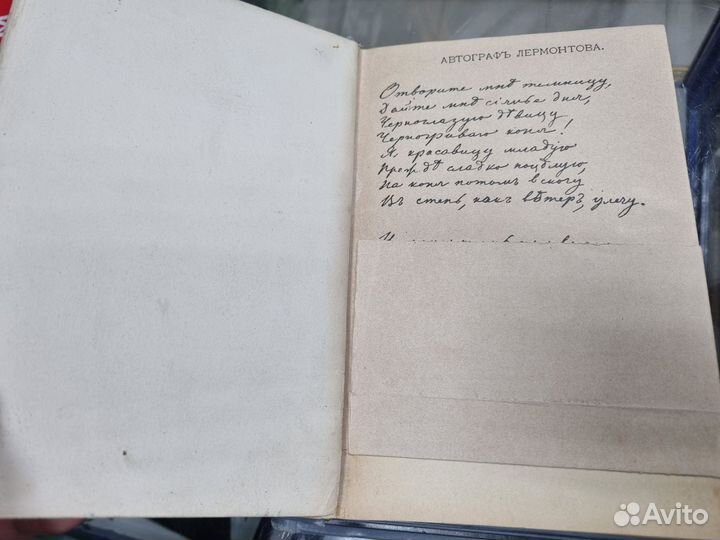 АВТОГРАФЪ ЛЕРМОНТОВА.
Отворите мнѣ темницу,
Дайте мнѣ сіянье дня,
Черноглазую дѣвицу
Черногриваго коня!
Я красавицу младую
Прежде сладко поцѣлую,
На коня потомъ вскочу
Въ степь, какъ вѣтеръ, улечу.
Avito